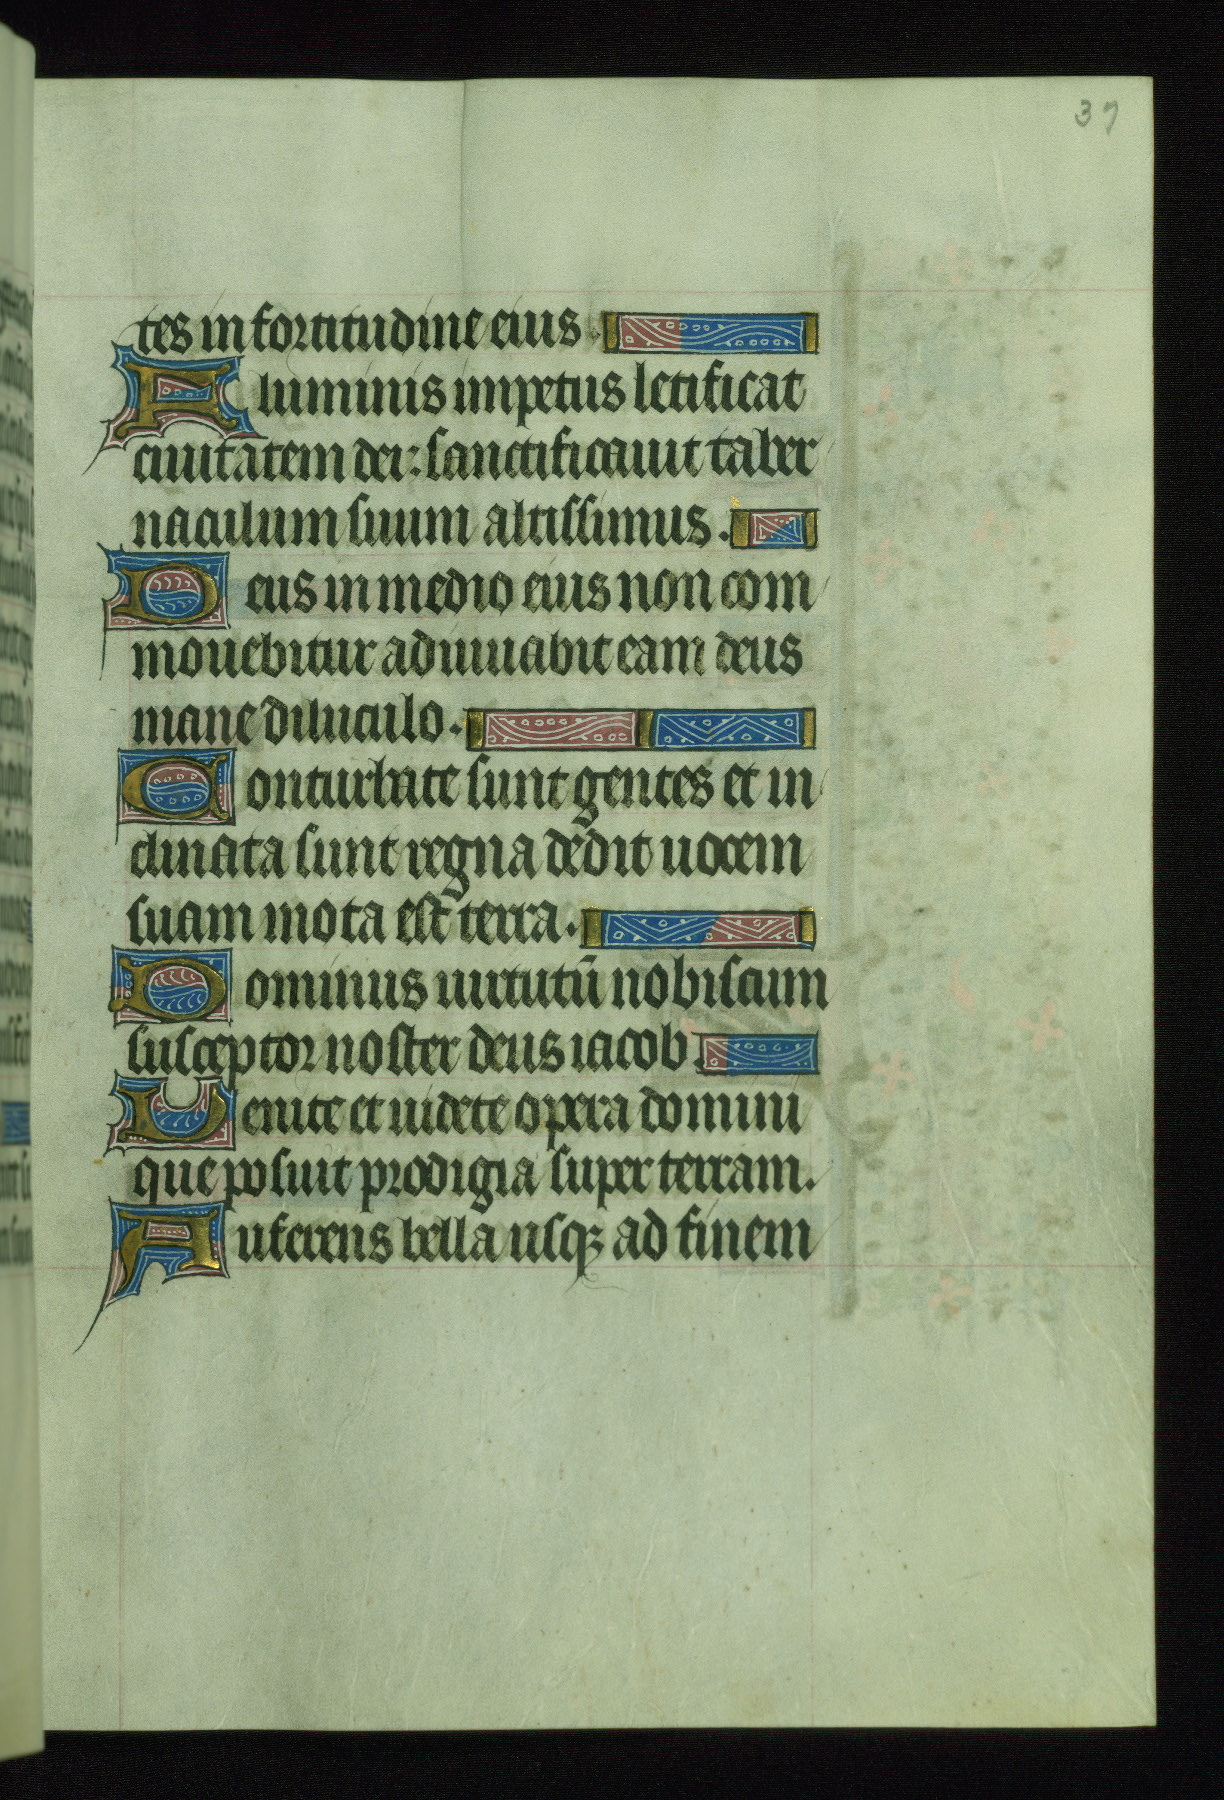 37
tes in fortitudine eius.
Fluminis impetus letificat
ciuitatem dei: sanctificauit taber
naculum suum altissimus.
Deus in medio eius non com
mouebitur adiuuabit eam deus
mane diluculo.
Conturbate sunt gentes et in
clinata sunt regna dedit uocem
suam mota est terra.
Dominus uirtutū nobiscum
susceptor noster deus iacob.
Uenite et uidete opera domini
que posuit prodigia super terram.
Auferens bella usqꝫ ad finem